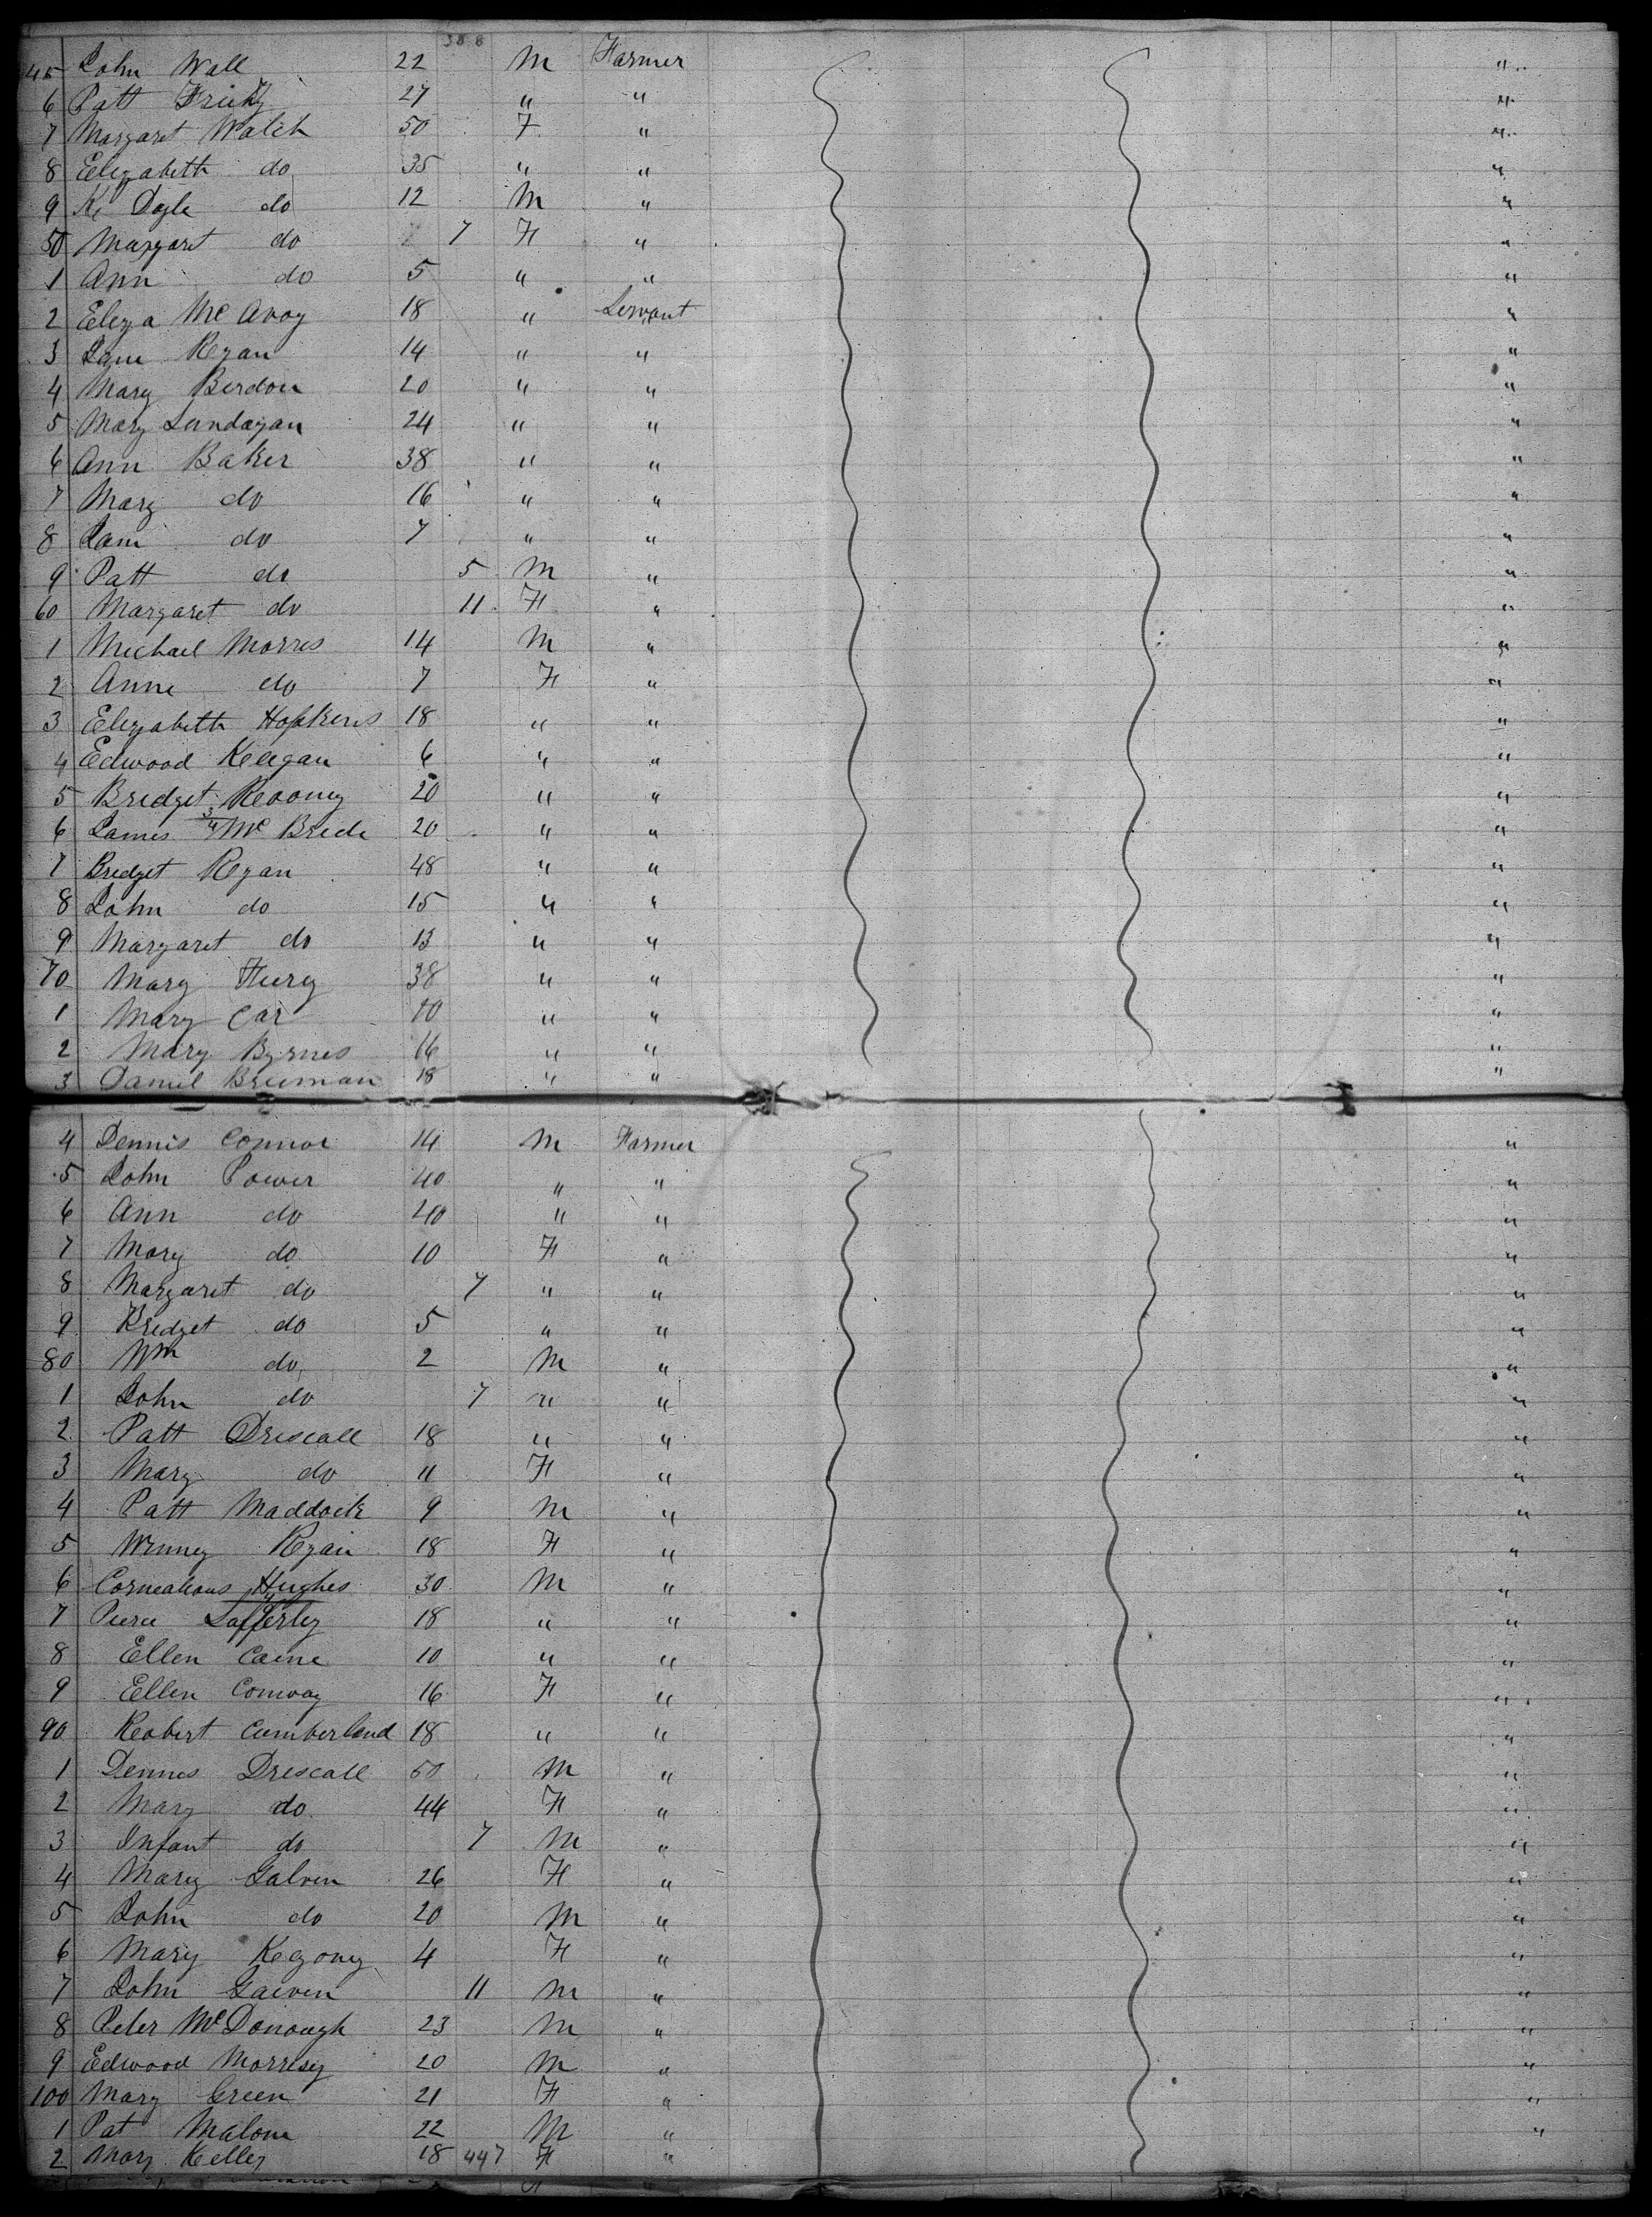 388
45 John Wall 22 M Farmer "
6 Patt 27 " " "
7 Margaret Walch 50 F " "
8 Elezabeth do 35 " " "
9 Doyle do 12 M " "
50 Margaret do 7 F " "
1 Ann do 5 " " "
2 Eleza Mc Avoy 18 " Servant "
3 Jane Regan 14 " " "
4 Mary Berdon 20 " " "
5 Mary Lundagan 24 " " "
6 Ann Baker 38 " " "
7 Mary do 16 " " "
8 Jane do 7 " " "
9 Patt do 5 M " "
60 Margaret do 11 F " "
1 Michael Morres 14 M " "
2 Anne do 7 F " "
3 Elezabeth Hopkens 18 " " "
4 Edwood Keegan 6 " " "
5 Bridget Reooney 20 " " "
6 James 3/4 Mc Brede 20 " " "
7 Bredget Regan 48 " " "
8 John do 15 " " "
9 Margaret do 13 " " "
70 Mary 38 " " "
1 Mary Car 10 " " "
2 Mary Byrnes 16 " " "
3 Daniel Breeman 18 " " "
4 Dennis Connor 14 M Farmer "
5 John Power 40 " " "
6 Ann do 40 " " "
7 Mary do 10 F " "
8 Margaret do 7 " " "
9 Bredget do 5 " " "
80 Wm do 2 M " "
1 John do 7 " " "
2 Patt Drescall 18 " " "
3 Mary do 11 F " "
4 Patt Maddock 9 M " "
5 Wenney Ryan 18 F " "
6 Cornealious Hughes 30 M " "
7 Peirce Lafferley 18 " " "
8 Ellen Caine 10 " " "
9 Ellen Conway 16 F " "
90 Reobert Cumberland 18 " " "
1 Dennes Drescall 50 M " "
2 Mary do 44 F " "
3 Infant do 7 M " "
4 Mary Galven 26 F " "
5 John do 20 M " "
6 Mary Kegoney 4 F " "
7 John Gaeven 11 M " "
8 Peter McDonough 23 M " "
9 Edwood Morresy 20 M " "
100 Mary Green 21 F " "
1 Pat Malone 22 M " "
2 Mary Kelley 18 447 F "